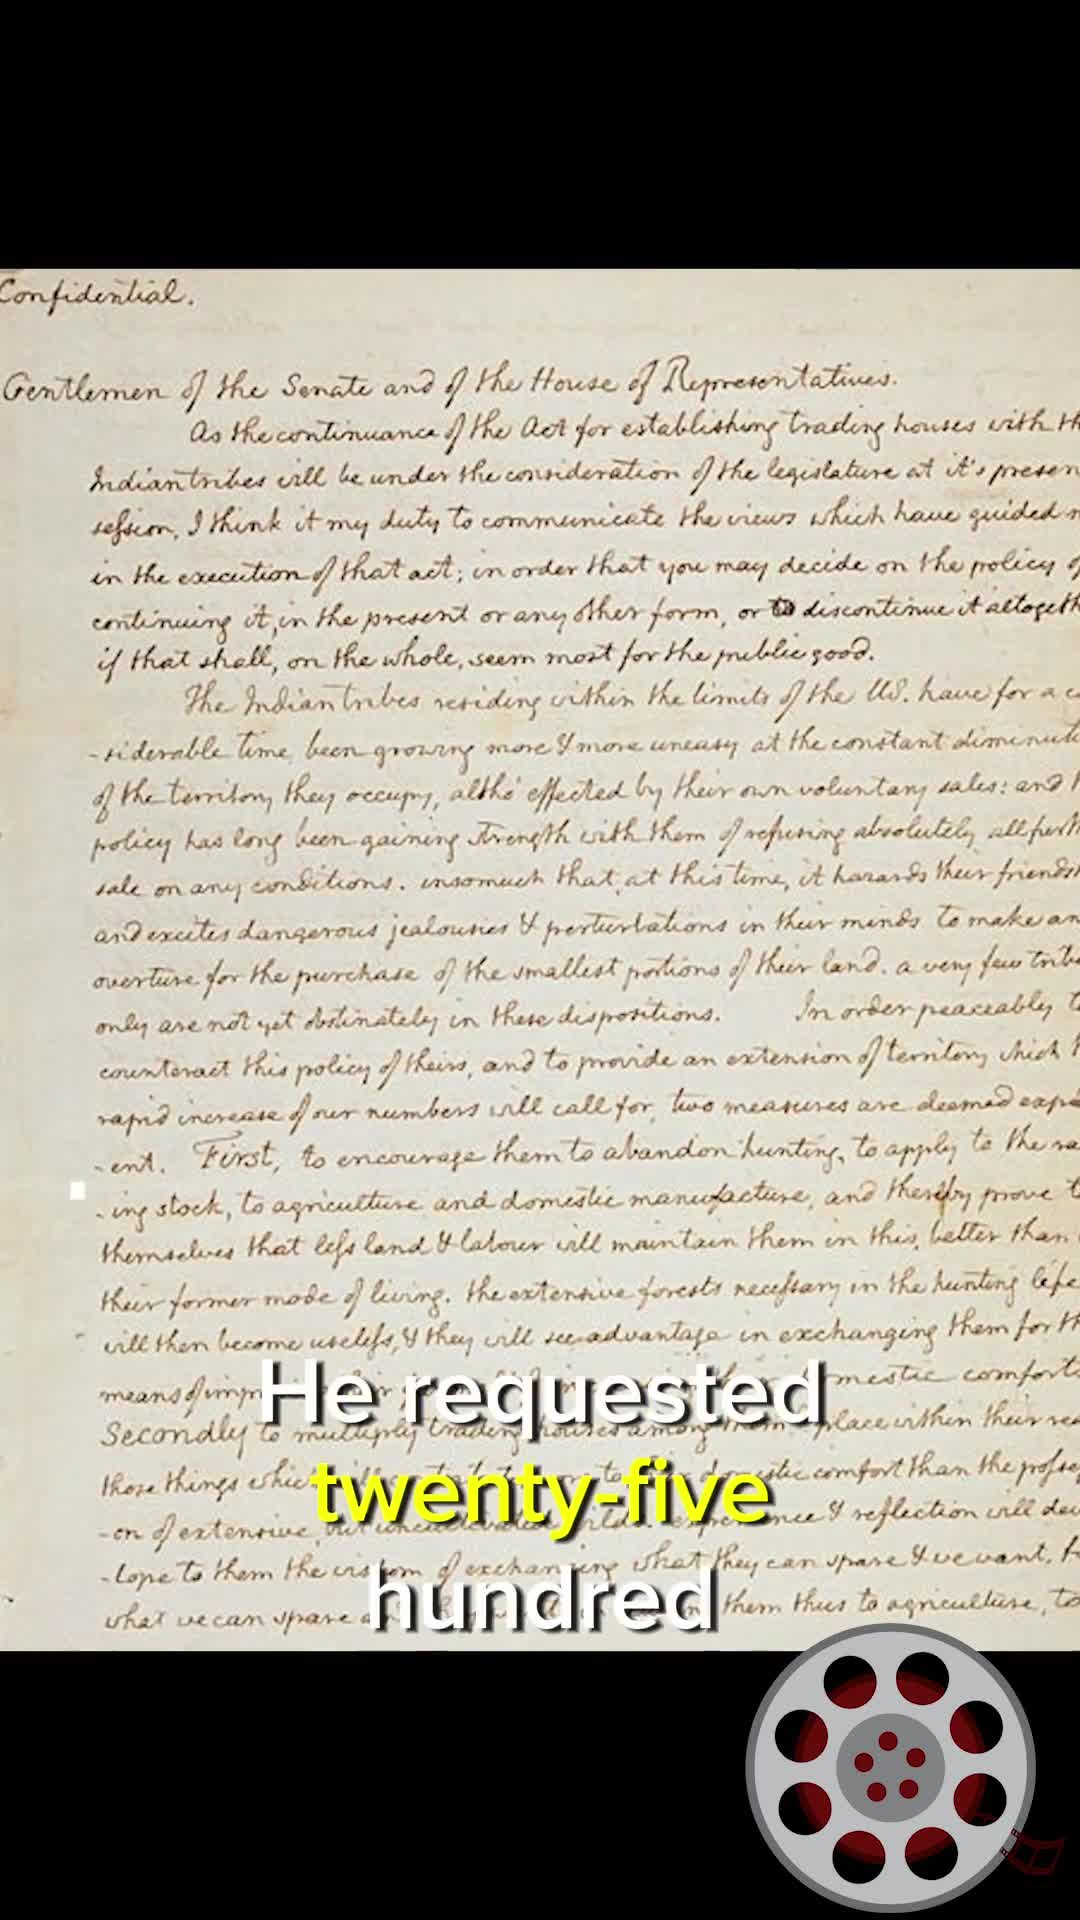 Confidential.
Gentlemen of the Senate and of the House of Representatives.
As the continuance of the Act for establishing trading houses with th
Indian tribes will be under the consideration of the legislature at it's presen
session, I think it my duty to communicate the views which have guided m
in the execution of that act; in order that you may decide on the policy of
continuing it, in the present or any other form, or to discontinue it altogeth
if that shall, on the whole, seem most for the public good.
The Indian tribes residing within the limits of the US. have for a co
-siderable time been growing more & more uneasy at the constant diminuti
of the territory they occupy, altho' effected by their own voluntary sales: and
policy has long been gaining strength with them of refusing absolutely all furth
sale on any conditions. insomuch that, at this time, it hazards their friendsh
and excites dangerous jealousies & perturbations in their minds to make an
overture for the purchase of the smallest portions of their land. a very few tribe
only are not yet obstinately in these dispositions. In order peaceably t
counteract this policy of theirs, and to provide an extension of territory which
rapid increase of our numbers will call for, two measures are deemed expe
-ent. First, to encourage them to abandon hunting, to apply to the rai
-ing stock, to agriculture and domestic manufacture, and thereby prove t
themselves that less land & labour will maintain them in this, better than
their former mode of living. the extensive forests necessary in the hunting life
will then become useless, & they will see advantage in exchanging them for th
means of domestic comforts
He requested
Secondly to multiply trading houses among them place within their rea
those things domestic comfort than the possess
twenty-five
-on of extensive, but uncultivated experience & reflection will de
-lope to them the wisdom of exchanging what they can spare & we want,
hundred
what we can spare them thus to agriculture, to